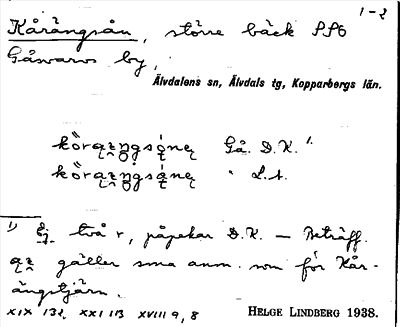 1-2
Kårängsån, större bäck SSO
Gåsvarvs by,
Älvdalens sn, Älvdals tg, Kopparbergs län.
Gå. D.K. 1.
" L.A.
1) Ej två r, påpekar D.K. — Beträff.
gäller sma anm. som för Kår-
ängstjärn.
XIX 132, XXI 113 XVIII 9, 8 HELGE LINDBERG 1938.